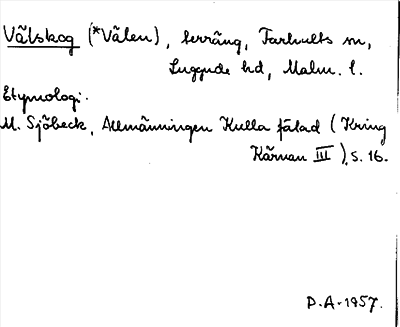 Vålskog (*Vålen), terräng, Farhults sn,
Luggude hd, Malm. l.
Etymologi.
M. Sjöbeck, Allmänningen Kulla fälad (Kring
Kärnan III), s. 16.
P.A. 1957.